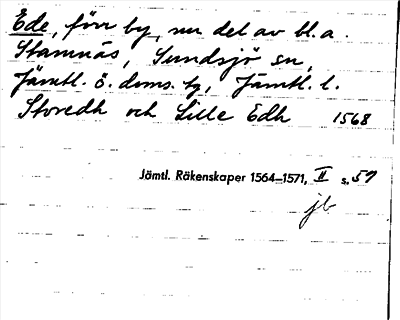 Ede, förr by, nu del av bl.a.
Stamnäs, Sundsjö sn,
Jämtl. ö. doms. tg, Jämtl. l.
Storedh och Lille Edh 1568
Jämtl. Räkenskaper 1564–1571, II s. 57
jb